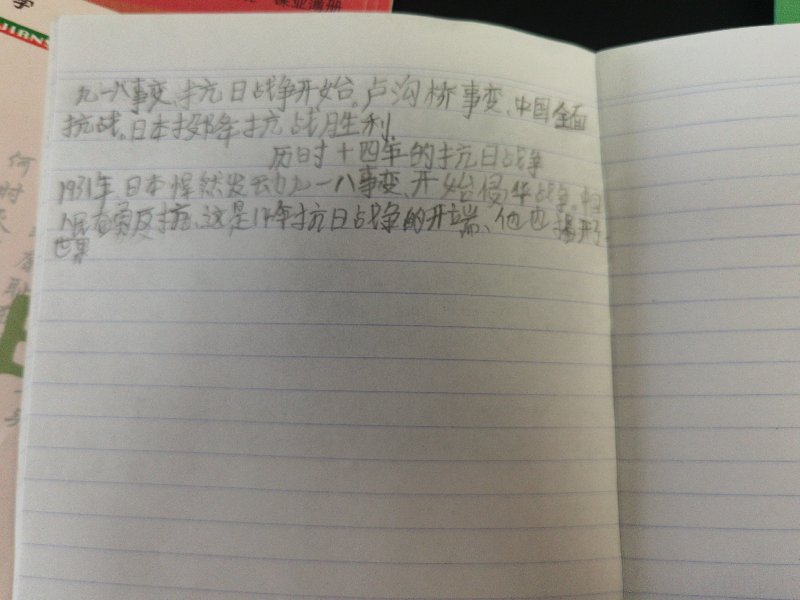 学
课业簿册
JIANS
何
时
九一八事变、抗日战争开始。卢沟桥事变、中国全面
抗战、日本投降抗战胜利、
历时十四年的抗日战争
1931年日本悍然发动九一八事变、开始侵华战争、中国
人民奋勇反抗、这是14年抗日战争的开端、他也揭开了
世界